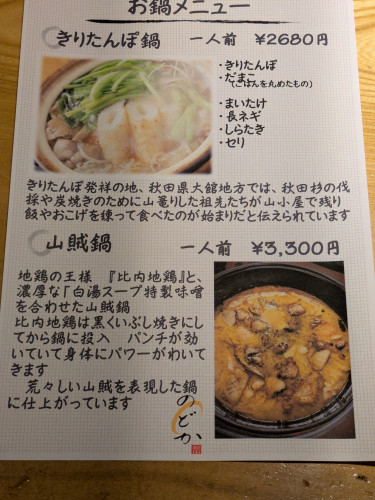 お鍋メニュー
きりたんぽ鍋 一人前 ¥2680円
・きりたんぽ
・だまこ
(ごはんを丸めたもの)
・まいたけ
・長ネギ
・しらたき
・セリ
きりたんぽ発祥の地、秋田県大舘地方では、秋田杉の伐
採や炭焼きのために山篭りした祖先たちが山小屋で残り
飯やおこげを練って食べたのが始まりだと伝えられています
山賊鍋 一人前 ¥3,300円
地鶏の王様 『比内地鶏』と、
濃厚な「白湯スープ特製味噌
を合わせた山賊鍋
比内地鶏は黒くいぶし焼きにし
てから鍋に投入 パンチが効
いていて身体にパワーがわいて
きます
荒々しい山賊を表現した鍋
に仕上がっています
のどか